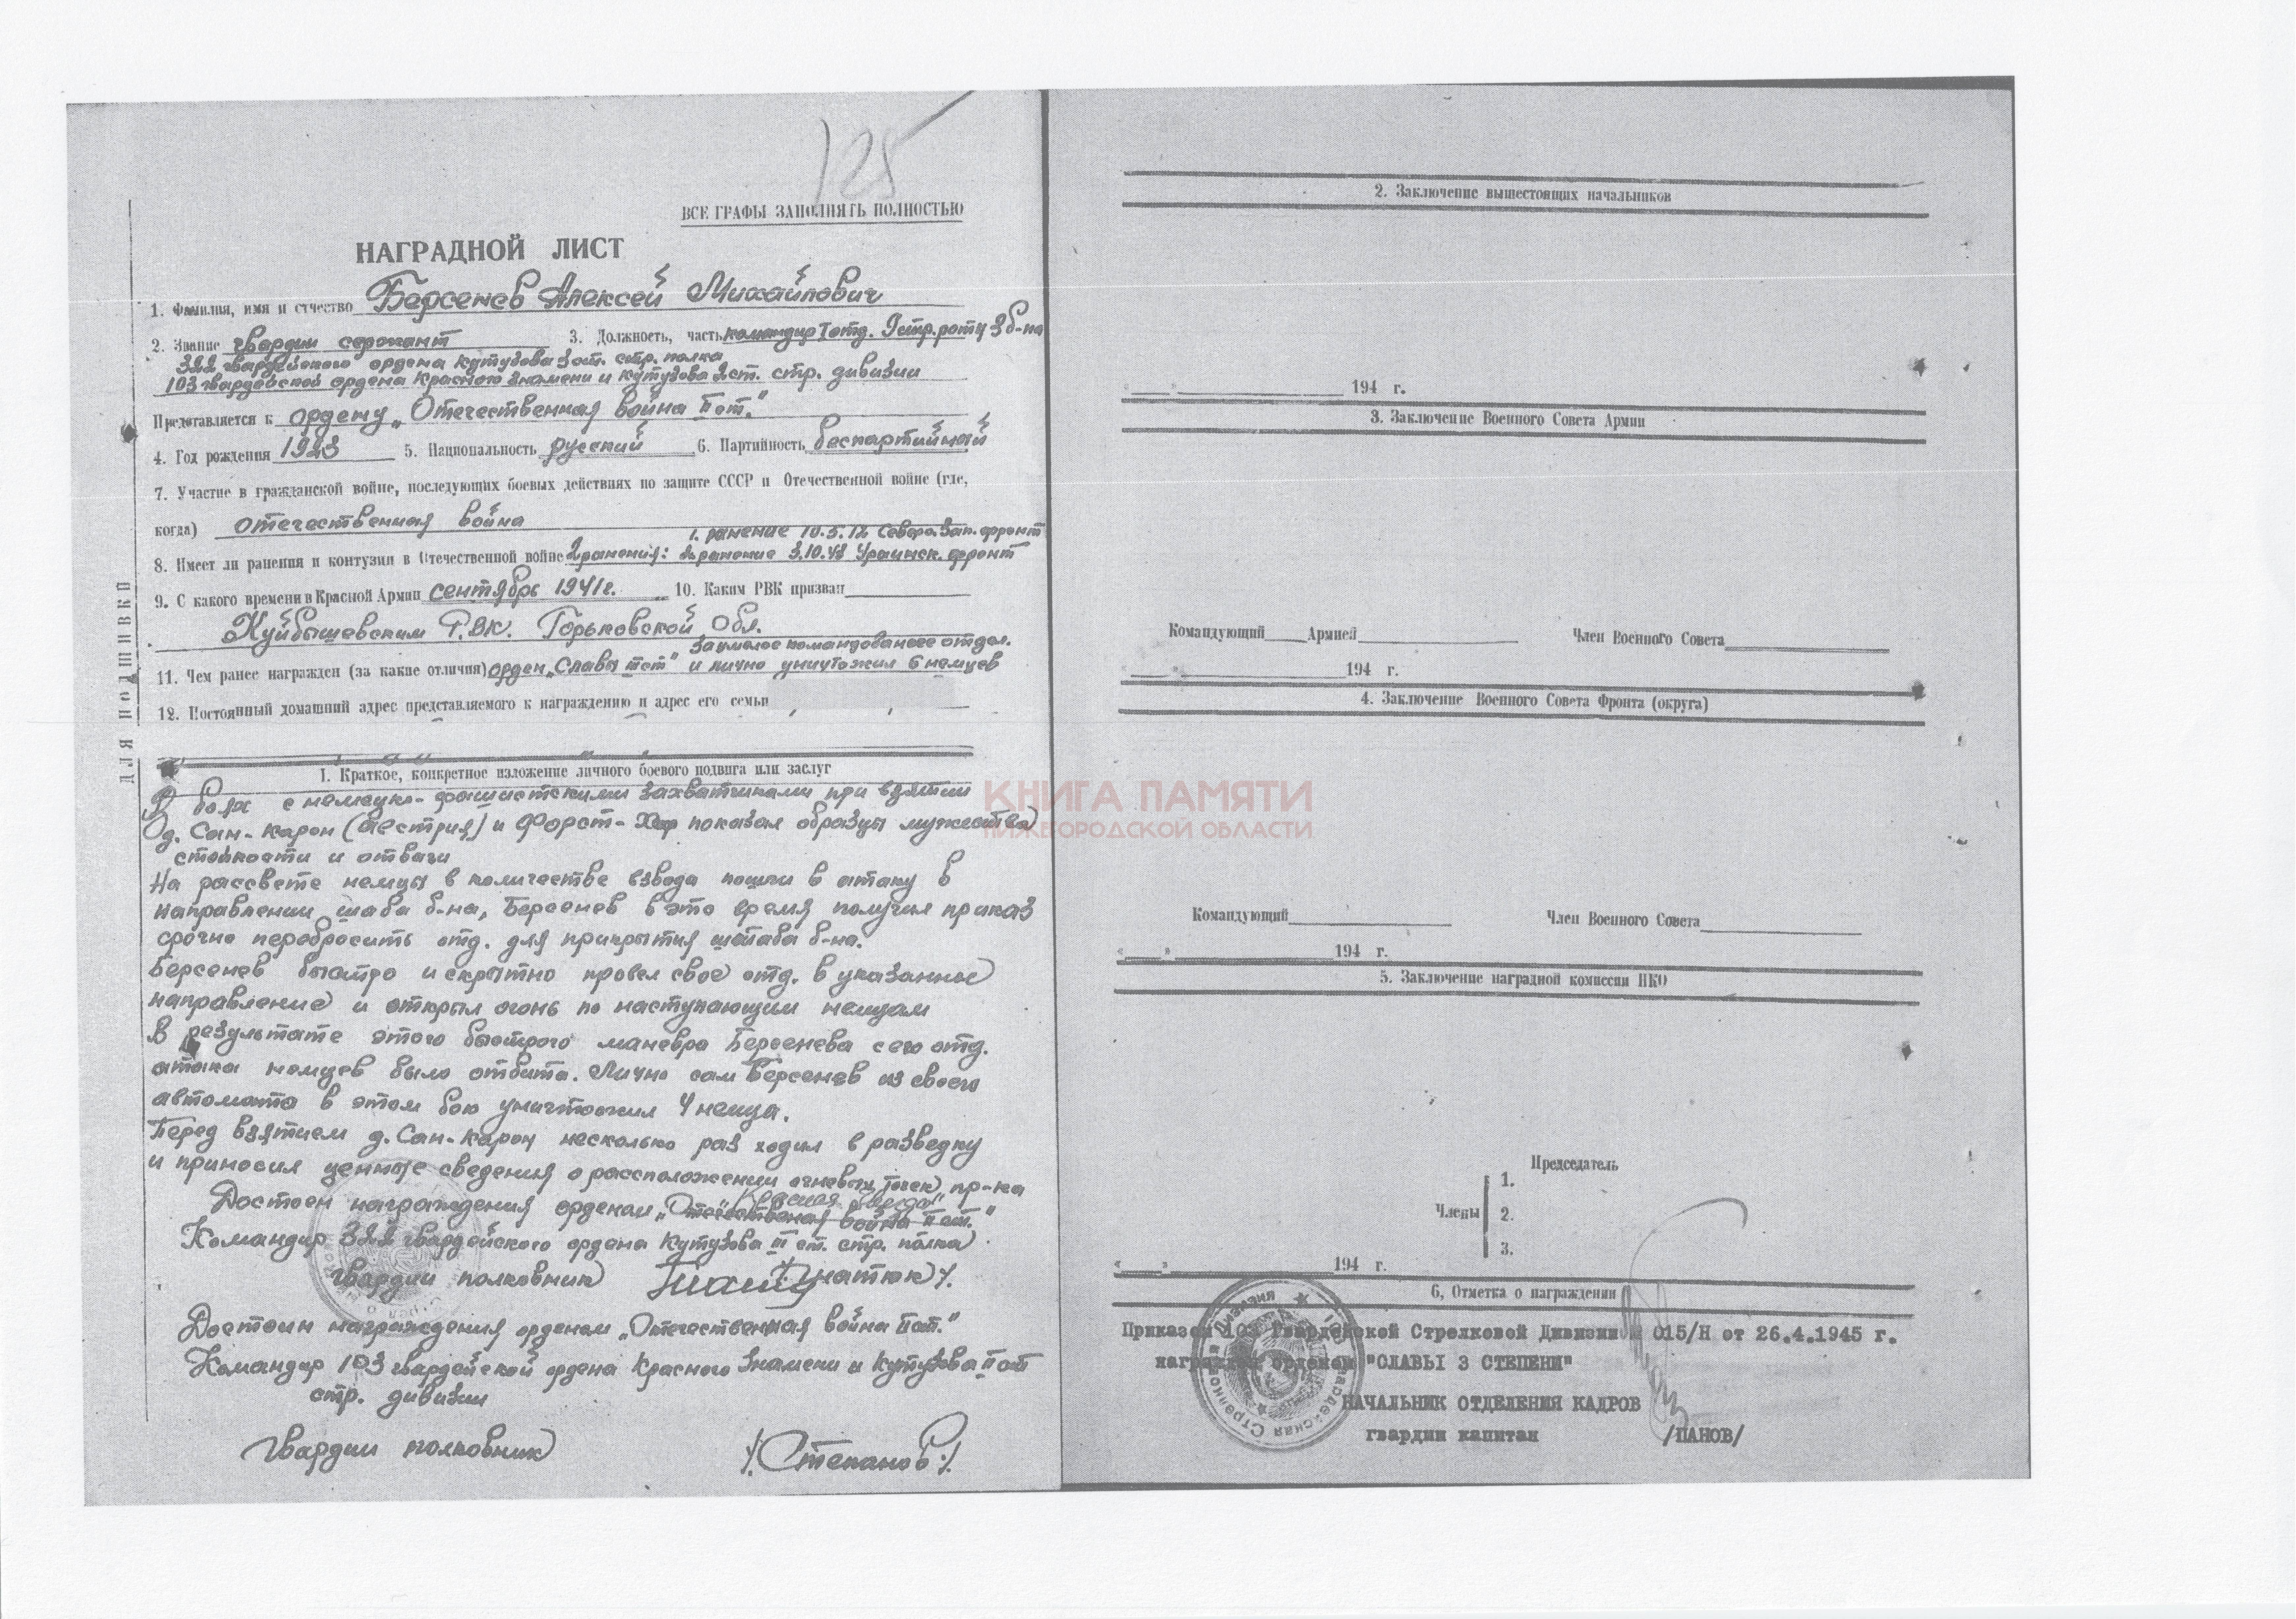 125
ВСЕ ГРАФЫ ЗАПОЛНЯТЬ ПОЛНОСТЬЮ
НАГРАДНОЙ ЛИСТ
1. Фамилия, имя и отчество Берсенев Алексей Михайлович
2. Звание гвардии сержант 3. Должность, часть командир отд. стр. роты 3 б-на
322 гвардейского ордена Кутузова 3 ст. стр. полка
103 гвардейской ордена Красного Знамени и Кутузова 2 ст. стр. дивизии
Представляется к ордену „Отечественная война II ст."
4. Год рождения 1923 5. Национальность русский 6. Партийность беспартийный
7. Участие в гражданской войне, последующих боевых действиях по защите СССР и Отечественной войне (где,
когда) отечественная война
1. ранение Северо. Зап. фронт
8. Имеет ли ранения и контузии в Отечественной войне 2 ранения: 2 ранение 3.10.43 фронт
9. С какого времени в Красной Армии сентябрь 1941 г. 10. Каким РВК призван
Куйбышевским Р.В.К. Горьковской Обл.
за умелое командование отдел.
11. Чем ранее награжден (за какие отличия) орден „Славы ст" и лично уничтожил 6 немцев
12. Постоянный домашний адрес представляемого к награждению и адрес его семьи
ДЛЯ ПОДШИВКИ
I. Краткое, конкретное изложение личного боевого подвига или заслуг
В боях с немецко-фашистскими захватчиками при взятии
д. Сан-Карон (Австрия) и Форст- показал образцы мужества
стойкости и отваги
На рассвете немцы в количестве взвода пошли в атаку в
направлении шаба б-на, Берсенев в это время получил приказ
срочно перебросить отд. для прикрытия штаба б-на.
Берсенев быстро и скрытно провел свое отд. в указанное
направление и открыл огонь по наступающим немцам
В результате этого быстрого маневра Берсенева с его отд.
атака немцев было отбита. Лично сам Берсенев из своего
автомата в этом бою уничтожил 4 немца.
Перед взятием д. Сан-Карон несколько раз ходил в разведку
и приносил ценные сведения о рассположении огневых точек пр-ка
Достоен награждения орденом „Отечественная война II ст."
„Красная Звезда"
Командир 322 гвардейского ордена Кутузова III ст. стр. полка
гвардии полковник /Игнатюк/.
Достоин награждения орденом „Отечественная война II ст."
Командир 103 гвардейской ордена Красного Знамени и Кутузова II ст
стр. дивизии
Гвардии полковник /Степанов/.
2. Заключение вышестоящих начальников
194 г.
3. Заключение Военного Совета Армии
Командующий Армией Член Военного Совета
194 г.
4. Заключение Военного Совета Фронта (округа)
КНИГА ПАМЯТИ
НИЖЕГОРОДСКОЙ ОБЛАСТИ
Командующий Член Военного Совета
„ " 194 г.
5. Заключение наградной комиссии НКО
Председатель
Члены
1.
2.
3.
„ " 194 г.
6, Отметка о награждении
Приказом 103 Гвардейской Стрелковой Дивизии № 015/Н от 26.4.1945 г.
награжден орденом "СЛАВЫ 3 СТЕПЕНИ"
НАЧАЛЬНИК ОТДЕЛЕНИЯ КАДРОВ
гвардии капитан /ПАНОВ/